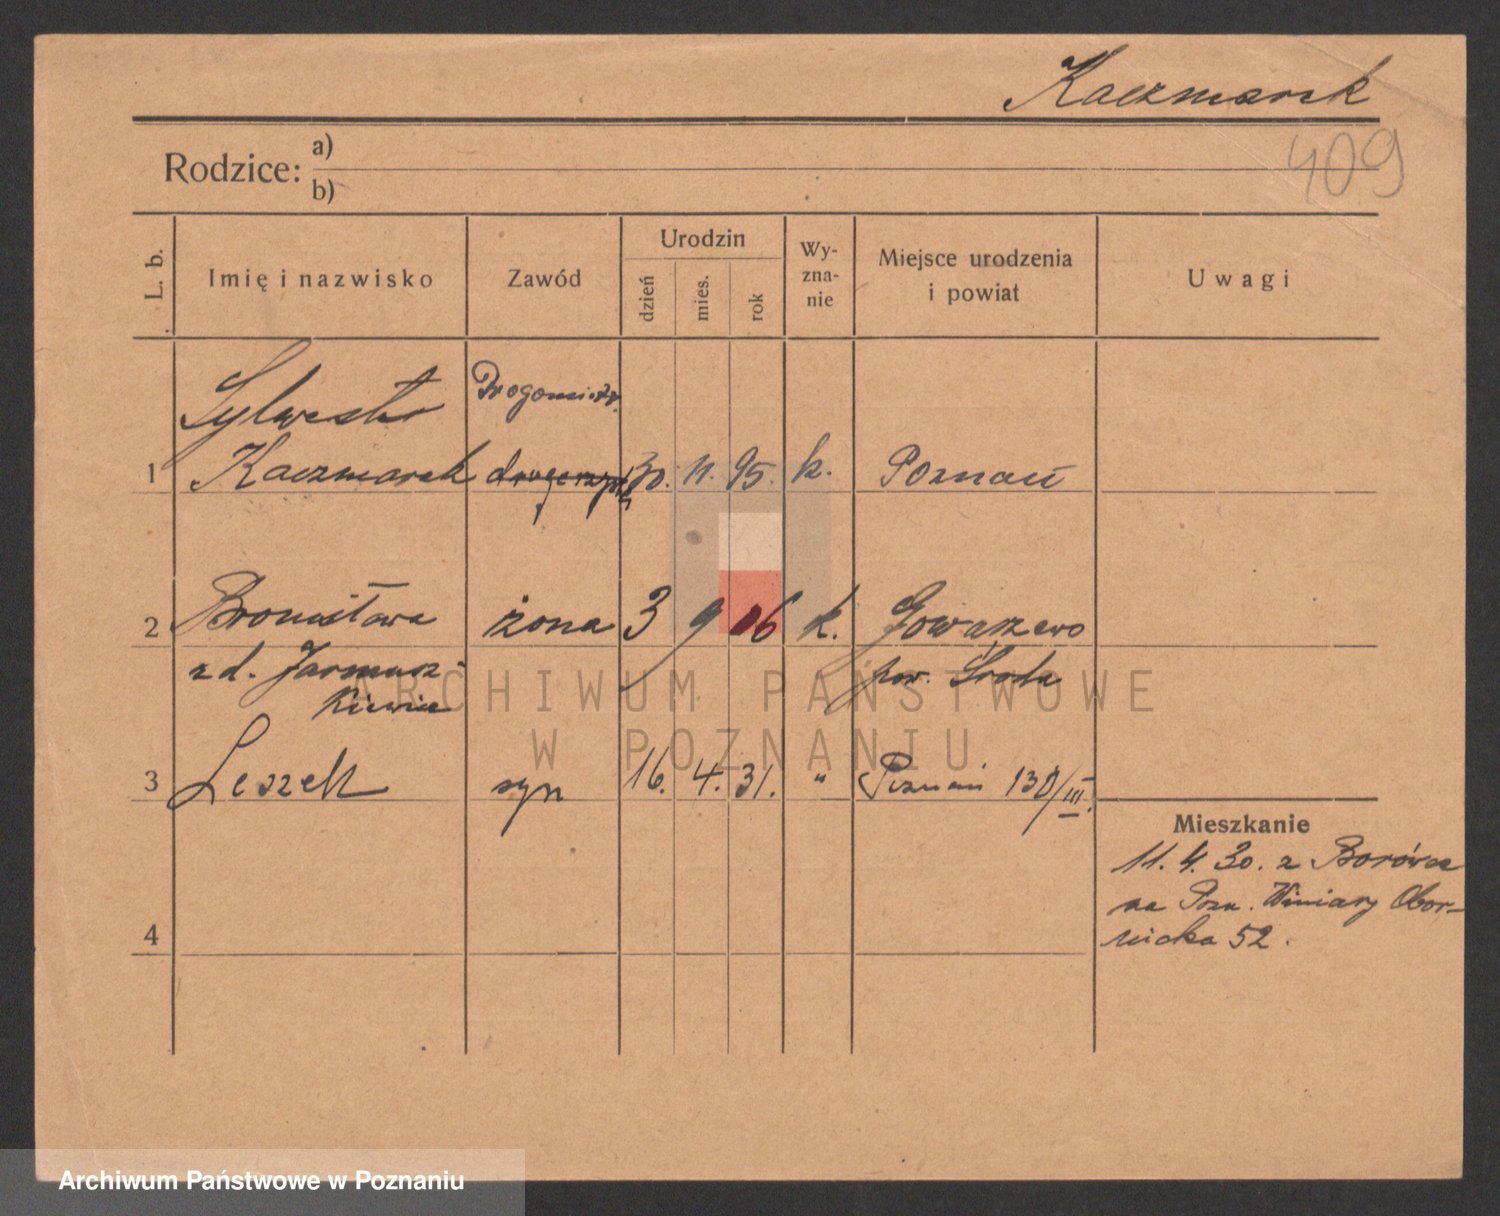 Kaczmarek
409
Rodzice: a)
b)
L. b.
Imię i nazwisko
Zawód
Urodzin
dzień
mies.
rok
Wy-
zna-
nie
Miejsce urodzenia
i powiat
Uwagi
Sylwester
Drogomistrz.
1 Kaczmarek 30. 11. 95. k. Poznań
2 Bronisława żona 3 9 06 k. Gowarzewo
z d. Jarmusz- pow. Środa
kiewicz
3 Leszek syn 16. 4. 31. " Poznań 130/III.
Mieszkanie
11. 4. 30. z Borówca
na Pozn. Winiary Obor-
nicka 52.
4
ARCHIWUM PAŃSTWOWE
W POZNANIU
Archiwum Państwowe w Poznaniu